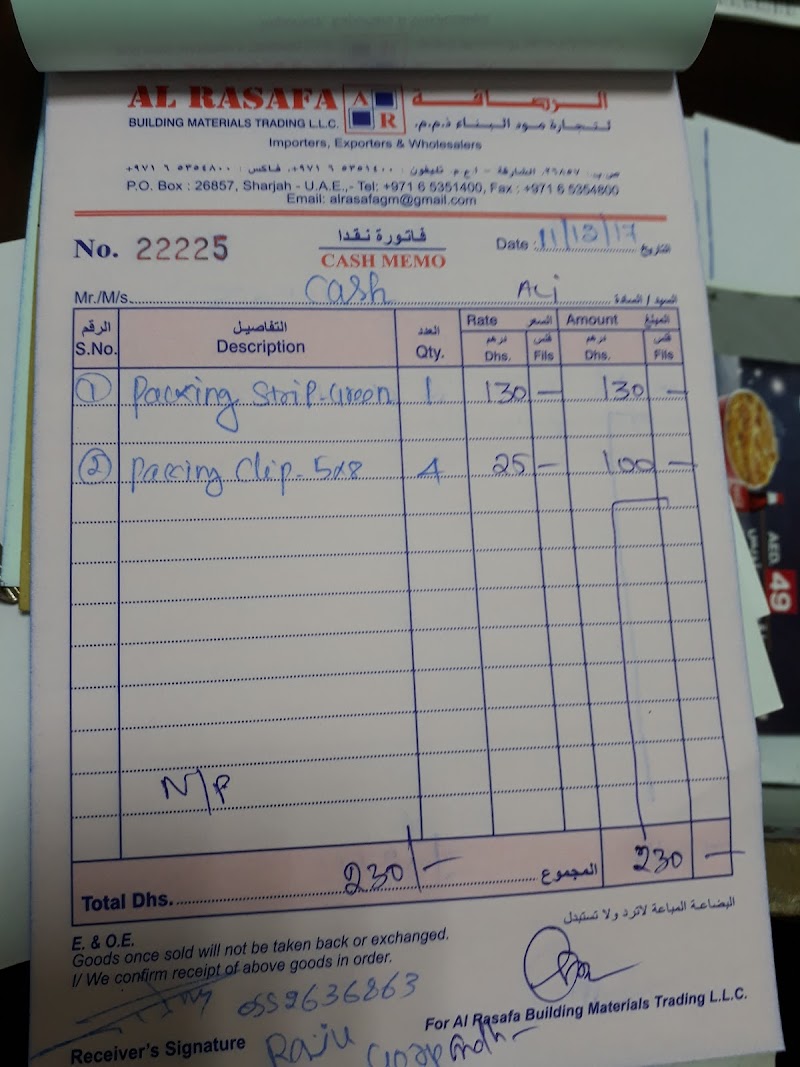 AL RASAFA A R الرصافة
BUILDING MATERIALS TRADING L.L.C. لتجارة مود البناء ذ.م.م.
Importers, Exporters & Wholesalers
ص.ب: ٢٦٨٥٧، الشارقة - ا ع م. تليفون: ٥٣٥١٤٠٠ ٦ ٩٧١+، فاكس: ٥٣٥٤٨٠٠ ٦ ٩٧١+
P.O. Box : 26857, Sharjah - U.A.E.,- Tel: +971 6 5351400, Fax : +971 6 5354800
Email: alrasafagm@gmail.com
No. 22225 فاتورة نقدا Date : التاريخ
CASH MEMO
Mr./M/s. Cash السيد / السادة
الرقم التفاصيل العدد Rate السعر Amount المبلغ
S.No. Description Qty. درهم فلس درهم فلس
Dhs. Fils Dhs. Fils
1 Packing Strip-Green 1 130 - 130 -
2 Packing Clip-5x8 4 25 - 100 -
N/P
Total Dhs. 230/- المجموع 230 -
البضاعة المباعة لاترد ولا تستبدل
E. & O.E.
Goods once sold will not be taken back or exchanged.
I/ We confirm receipt of above goods in order.
0552636863
For Al Rasafa Building Materials Trading L.L.C.
Receiver's Signature Raju
AED 49